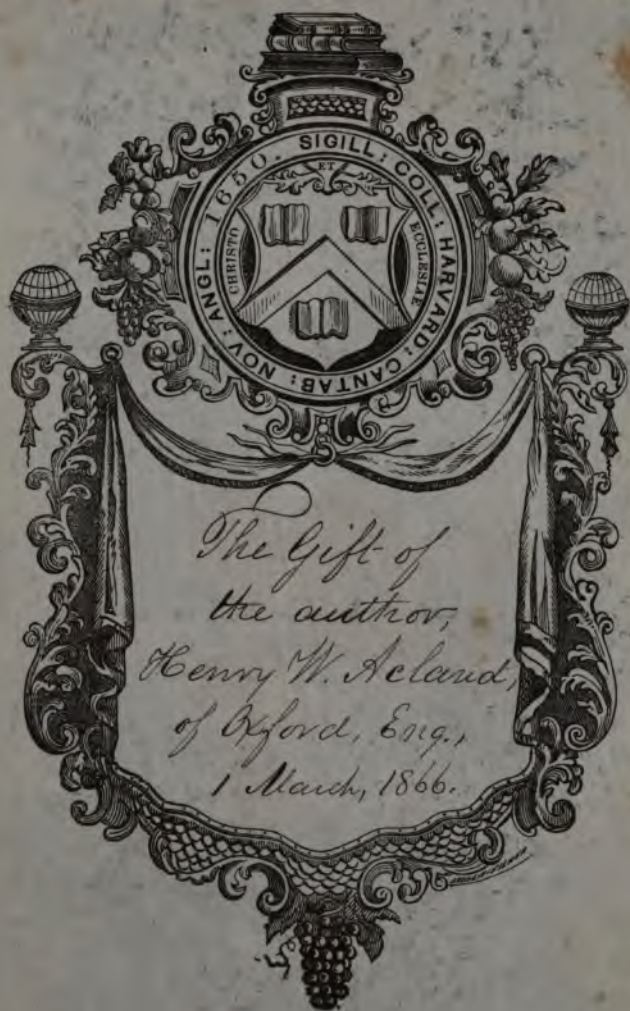 SIGILL: COLL: HARVARD: CANTAB: NOV: ANGL: 1650.
CHRISTO
ET
ECCLESIAE
The Gift of
the author,
Henry W. Acland,
of Oxford, Eng.,
1 March, 1866.